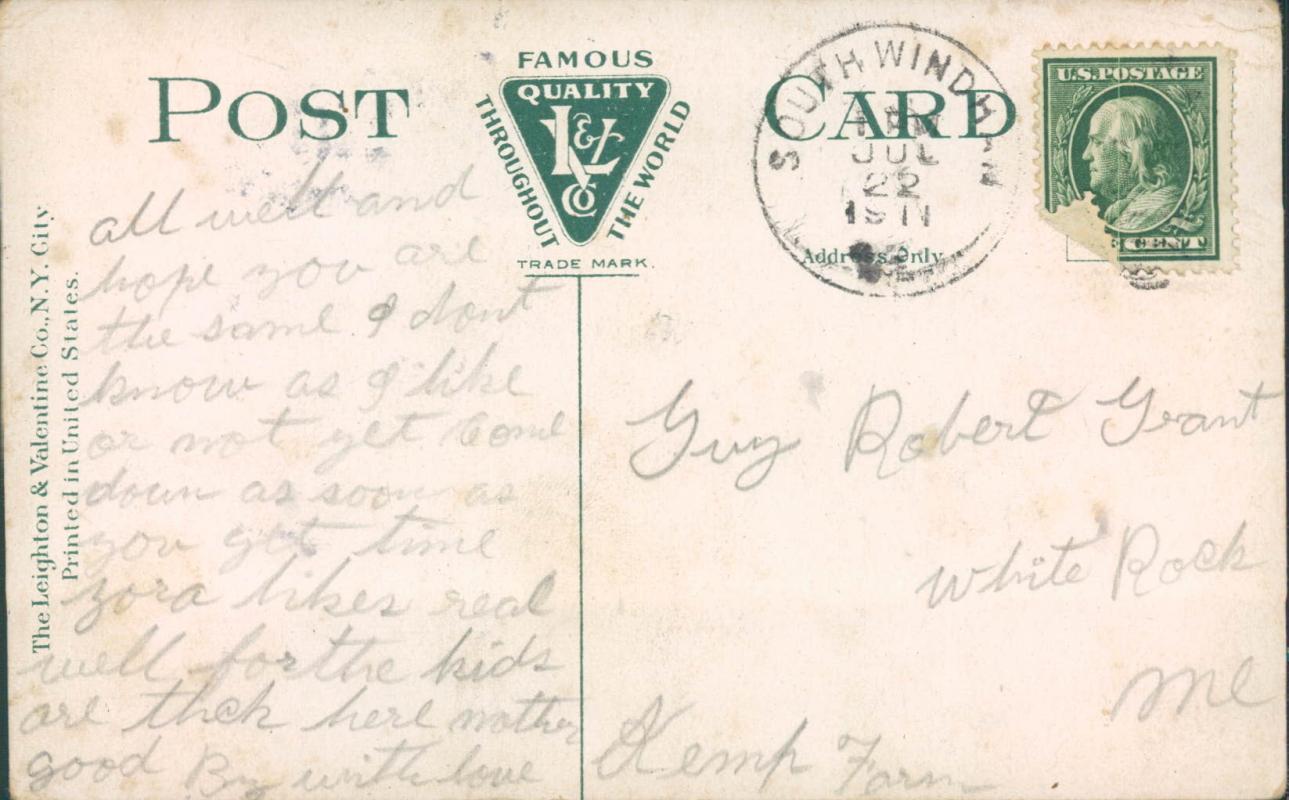 POST CARD
FAMOUS
QUALITY
L&V
Co
THROUGHOUT
THE WORLD
TRADE MARK.
SOUTH WINDHAM
JUL
22
1911
Address Only.
U.S. POSTAGE
CENT
The Leighton & Valentine Co., N.Y. City.
Printed in United States.
all well and
hope you are
the same I dont
know as I like
or not yet Come
down as soon as
you get time
zora likes real
well for the kids
are thck here mother
good By with love
Guy Robert Grant
White Rock
Me
Kemp Farm